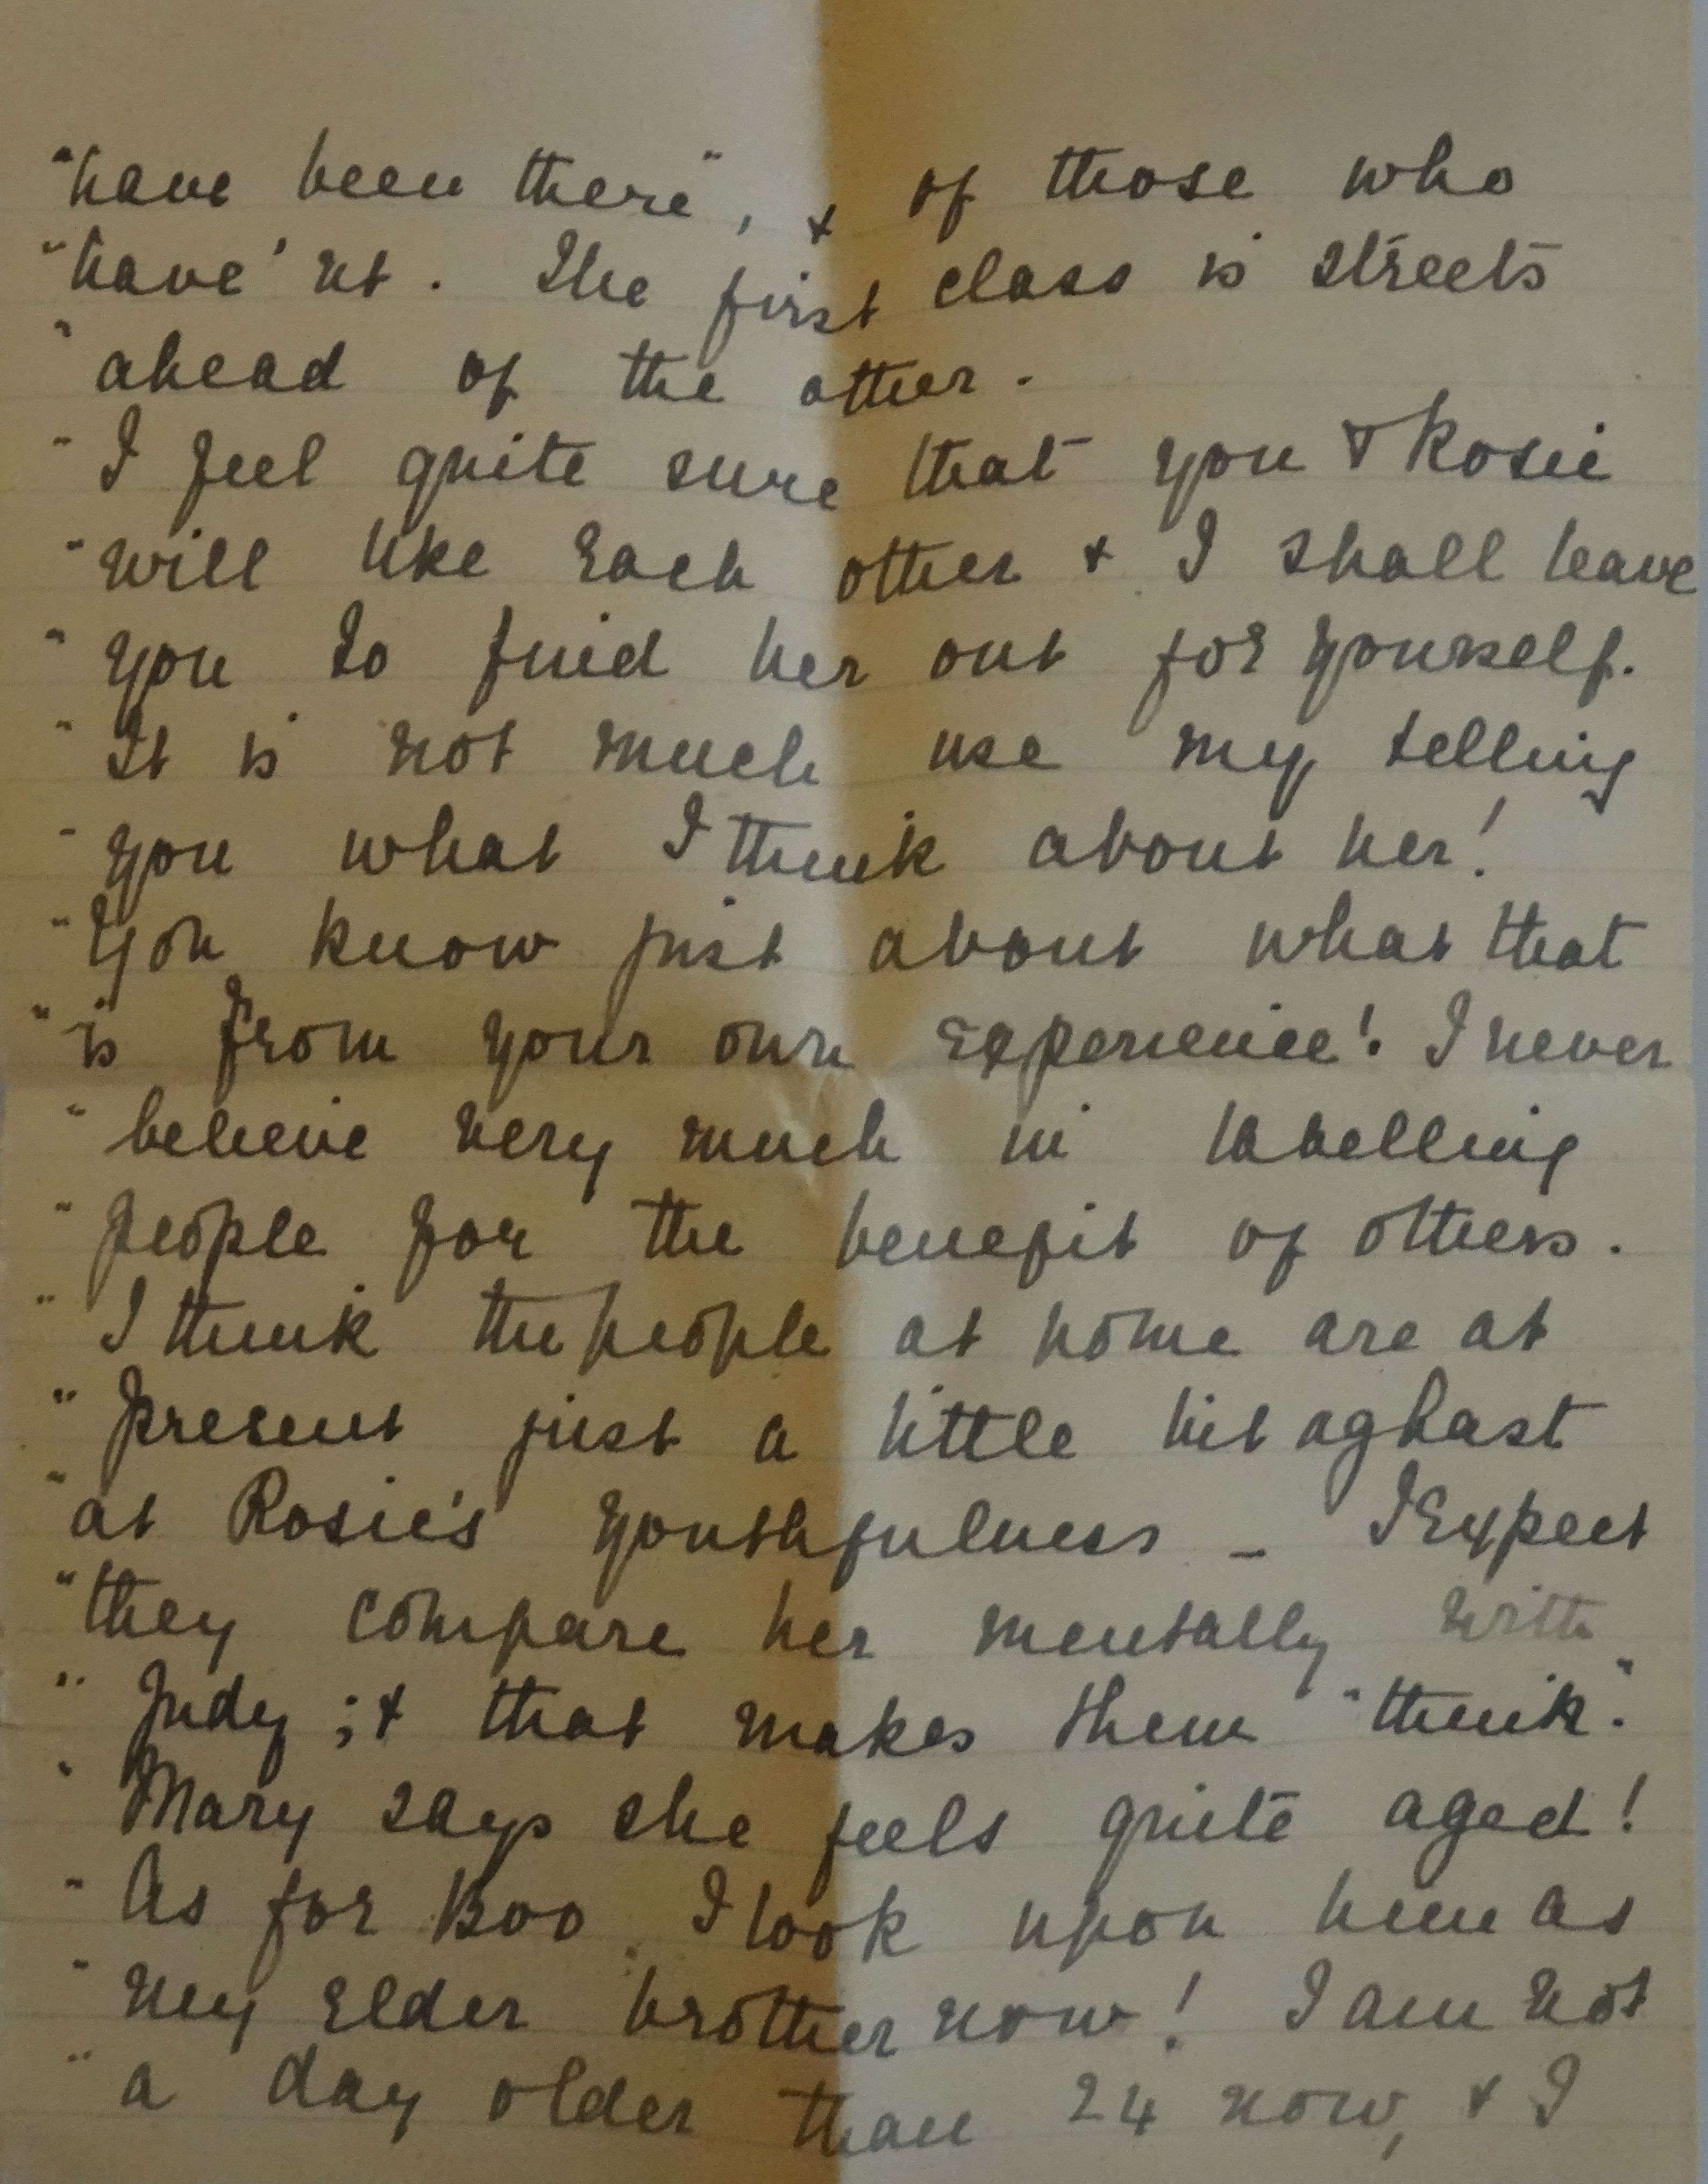 "have been there", & of those who
"have'nt. The first class is streets
"ahead of the other.
"I feel quite sure that you & Rosie
"will like each other & I shall leave
"you to find her out for yourself.
"It is not much use my telling
"you what I think about her!
"You know just about what that
"is from your own experience! I never
"believe very much in labelling
"people for the benefit of others.
"I think the people at home are at
"present just a little bit aghast
"at Rosie's youthfulness – I expect
"they compare her mentally with
"Judy; & that makes them "think".
"Mary says she feels quite aged!
"As for Boo. I look upon him as
"my elder brother now! I am not
"a day older than 24 now, & I